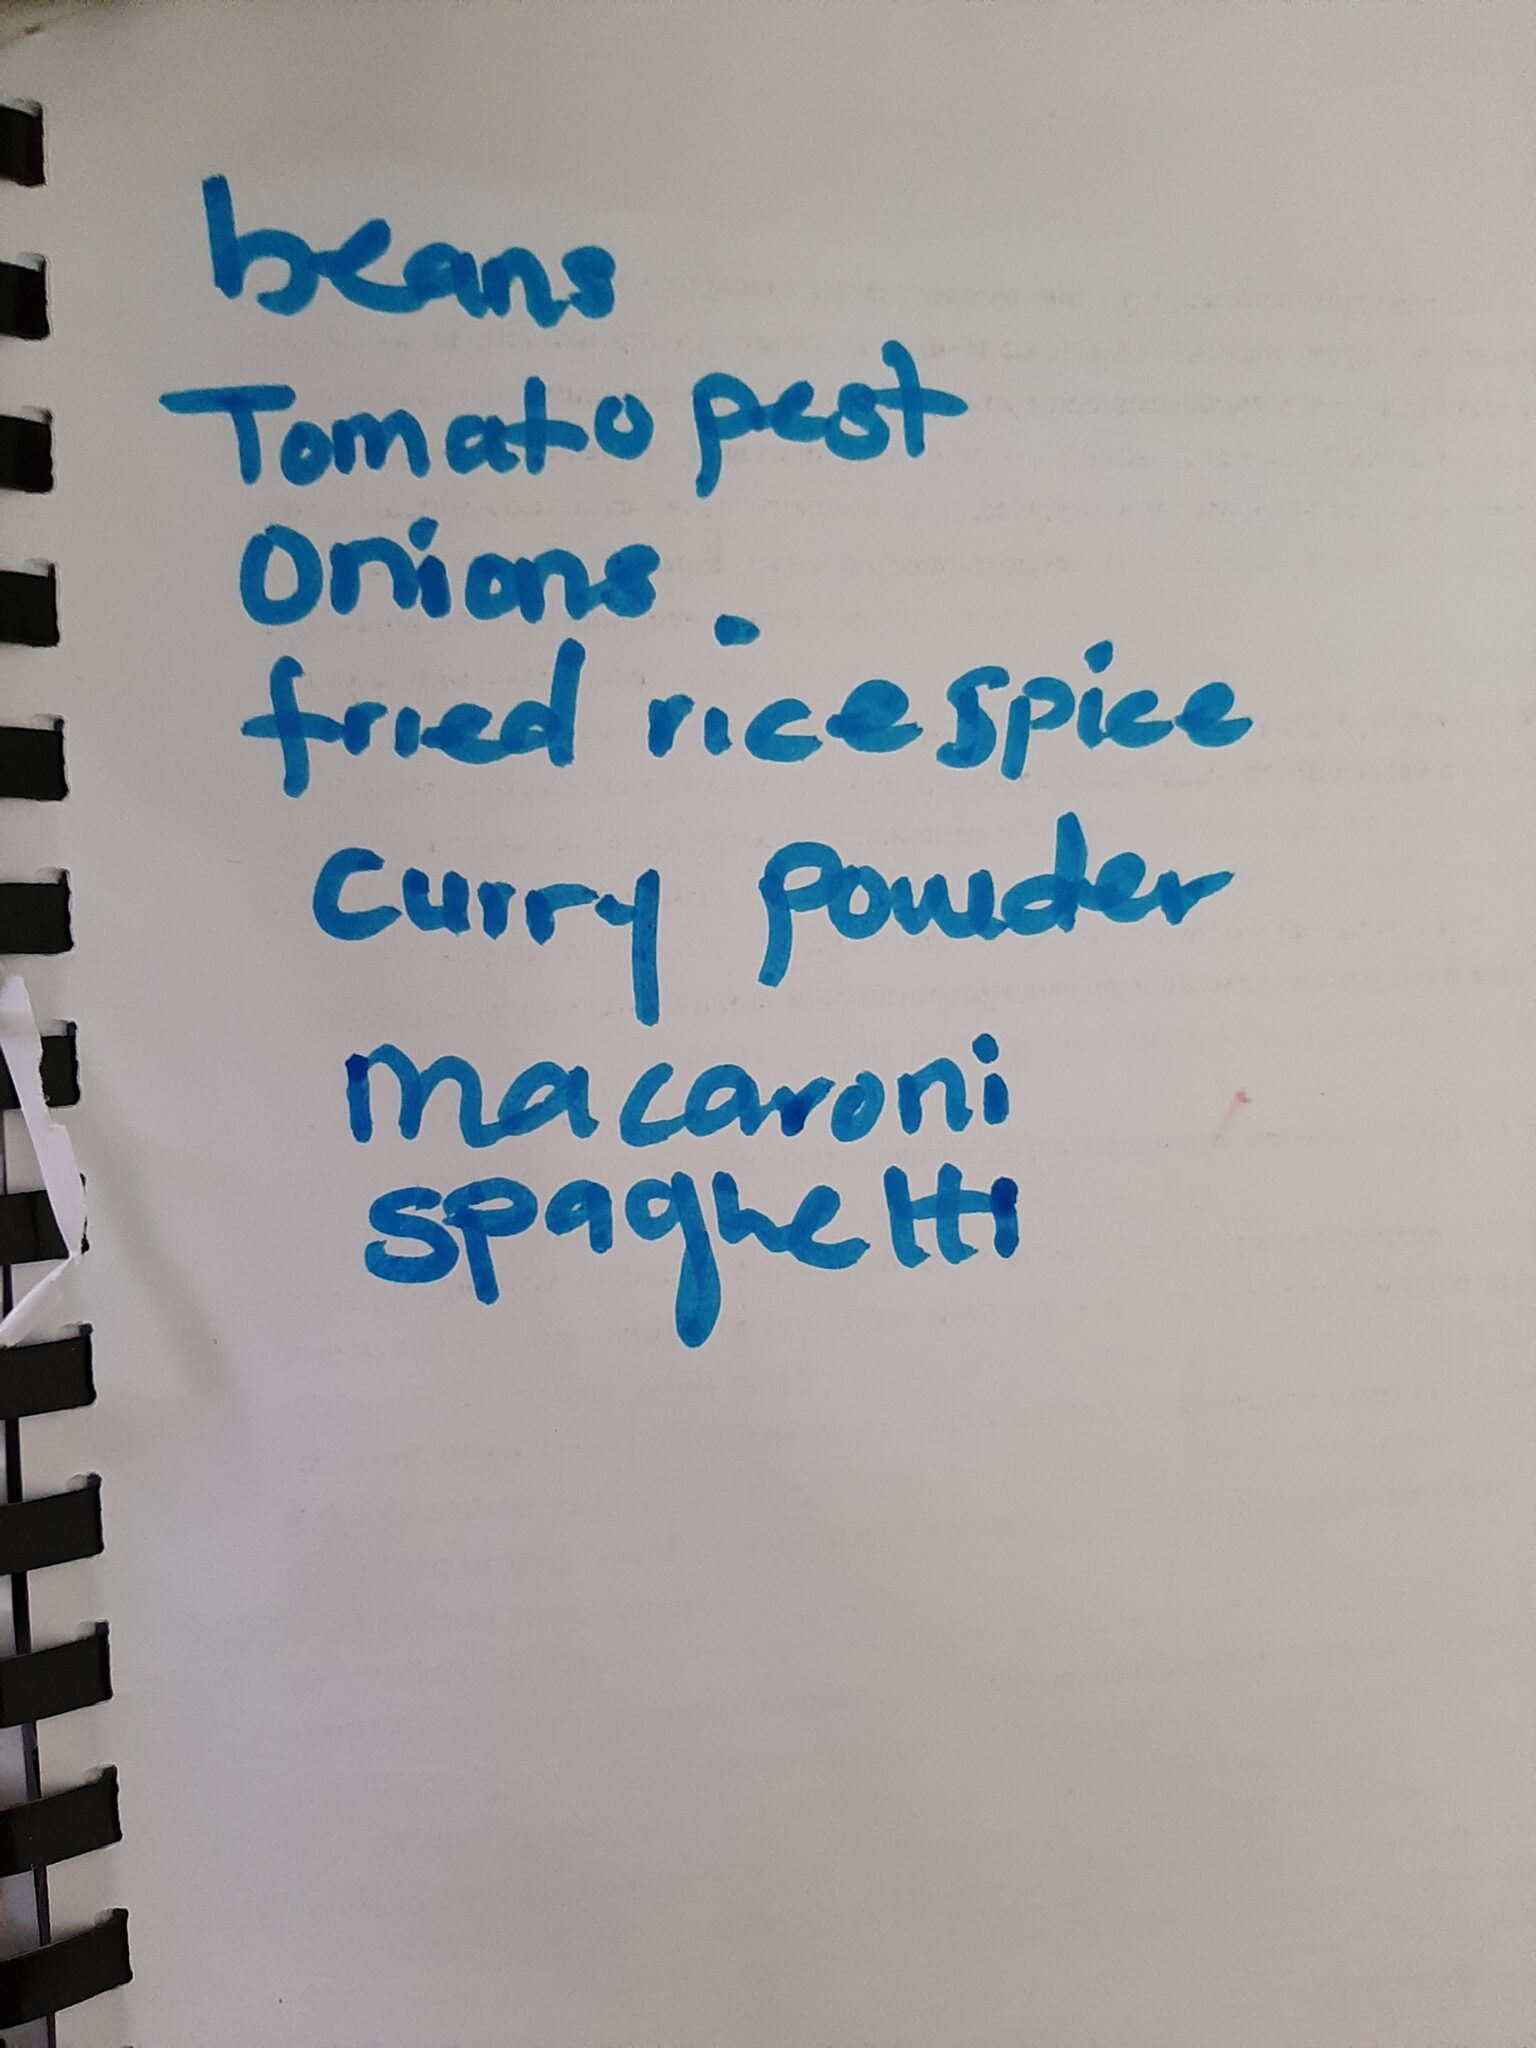 beans
Tomato pest
Onions
fried rice spice
Curry powder
Macaroni
spaghetti